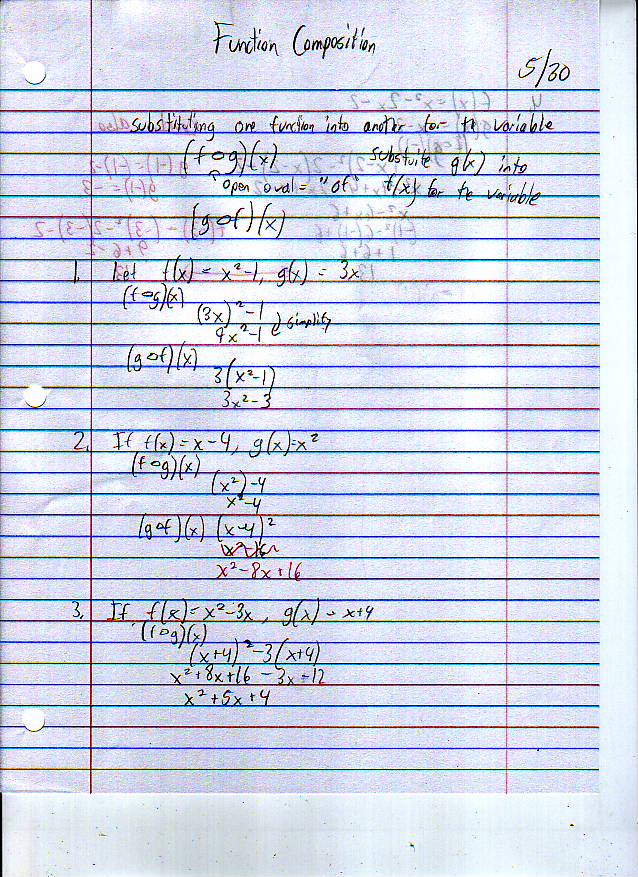 Function Composition
5/30
substituting one function into another for the variable
(f∘g)(x) substuite g(x) into
open oval = "of" f(x) for the variable
(g∘f)(x)
1. Let f(x) = x²-1, g(x) = 3x
(f∘g)(x)
(3x)²-1
9x²-1 simplify
(g∘f)(x)
3(x²-1)
3x²-3
2. If f(x)=x-4, g(x)=x²
(f∘g)(x)
(x²)-4
x²-4
(g∘f)(x) (x-4)²
x²-16
x²-8x+16
3. If f(x)=x²-3x, g(x) = x+4
(f∘g)(x)
(x+4)²-3(x+4)
x²+8x+16-3x-12
x²+5x+4